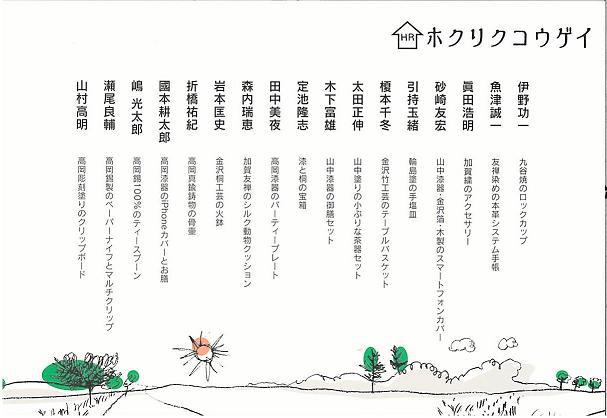 HR ホクリクコウゲイ
伊野功一 九谷焼のロックカップ
魚津誠一 友禅染めの本革システム手帳
眞田浩明 加賀繍のアクセサリー
砂崎友宏 山中漆器・金沢箔・木製のスマートフォンカバー
引持玉緒 輪島塗の手塩皿
榎本千冬 金沢竹工芸のテーブルバスケット
太田正伸 山中塗りの小ぶりな茶器セット
木下富雄 山中漆器の御膳セット
定池隆志 漆と桐の宝箱
田中美夜 高岡漆器のパーティープレート
森内瑞恵 加賀友禅のシルク動物クッション
岩本匡史 金沢桐工芸の火鉢
折橋祐紀 高岡真鍮鋳物の骨壷
國本耕太郎 高岡漆器のiPhoneカバーとお膳
嶋 光太郎 高岡錫100%のティースプーン
瀬尾良輔 高岡錫製のペーパーナイフとマルチクリップ
山村高明 高岡彫刻塗りのクリップボード